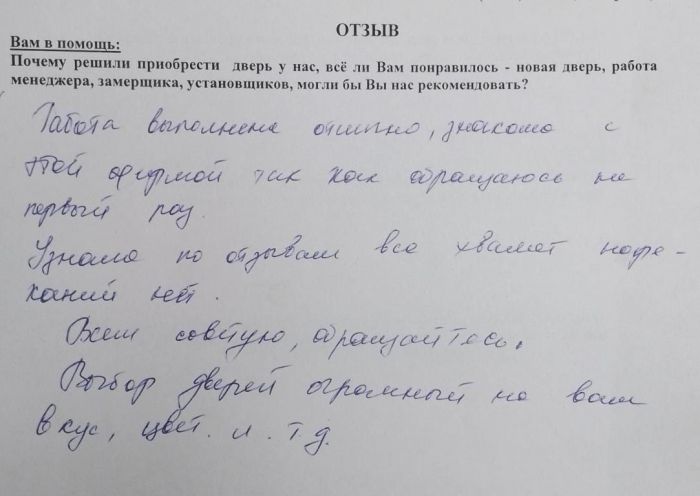 ОТЗЫВ
Вам в помощь:
Почему решили приобрести дверь у нас, всё ли Вам понравилось - новая дверь, работа
менеджера, замерщика, установщиков, могли бы Вы нас рекомендовать?
Работа выполнена отлично, знакома с
этой фирмой так как обращаюсь не
первый раз.
Узнала по отзывам все хвалят наре-
каний нет.
Всем советую, обращайтесь.
Выбор дверей огромный на ваш
вкус, цвет. и. т.д.